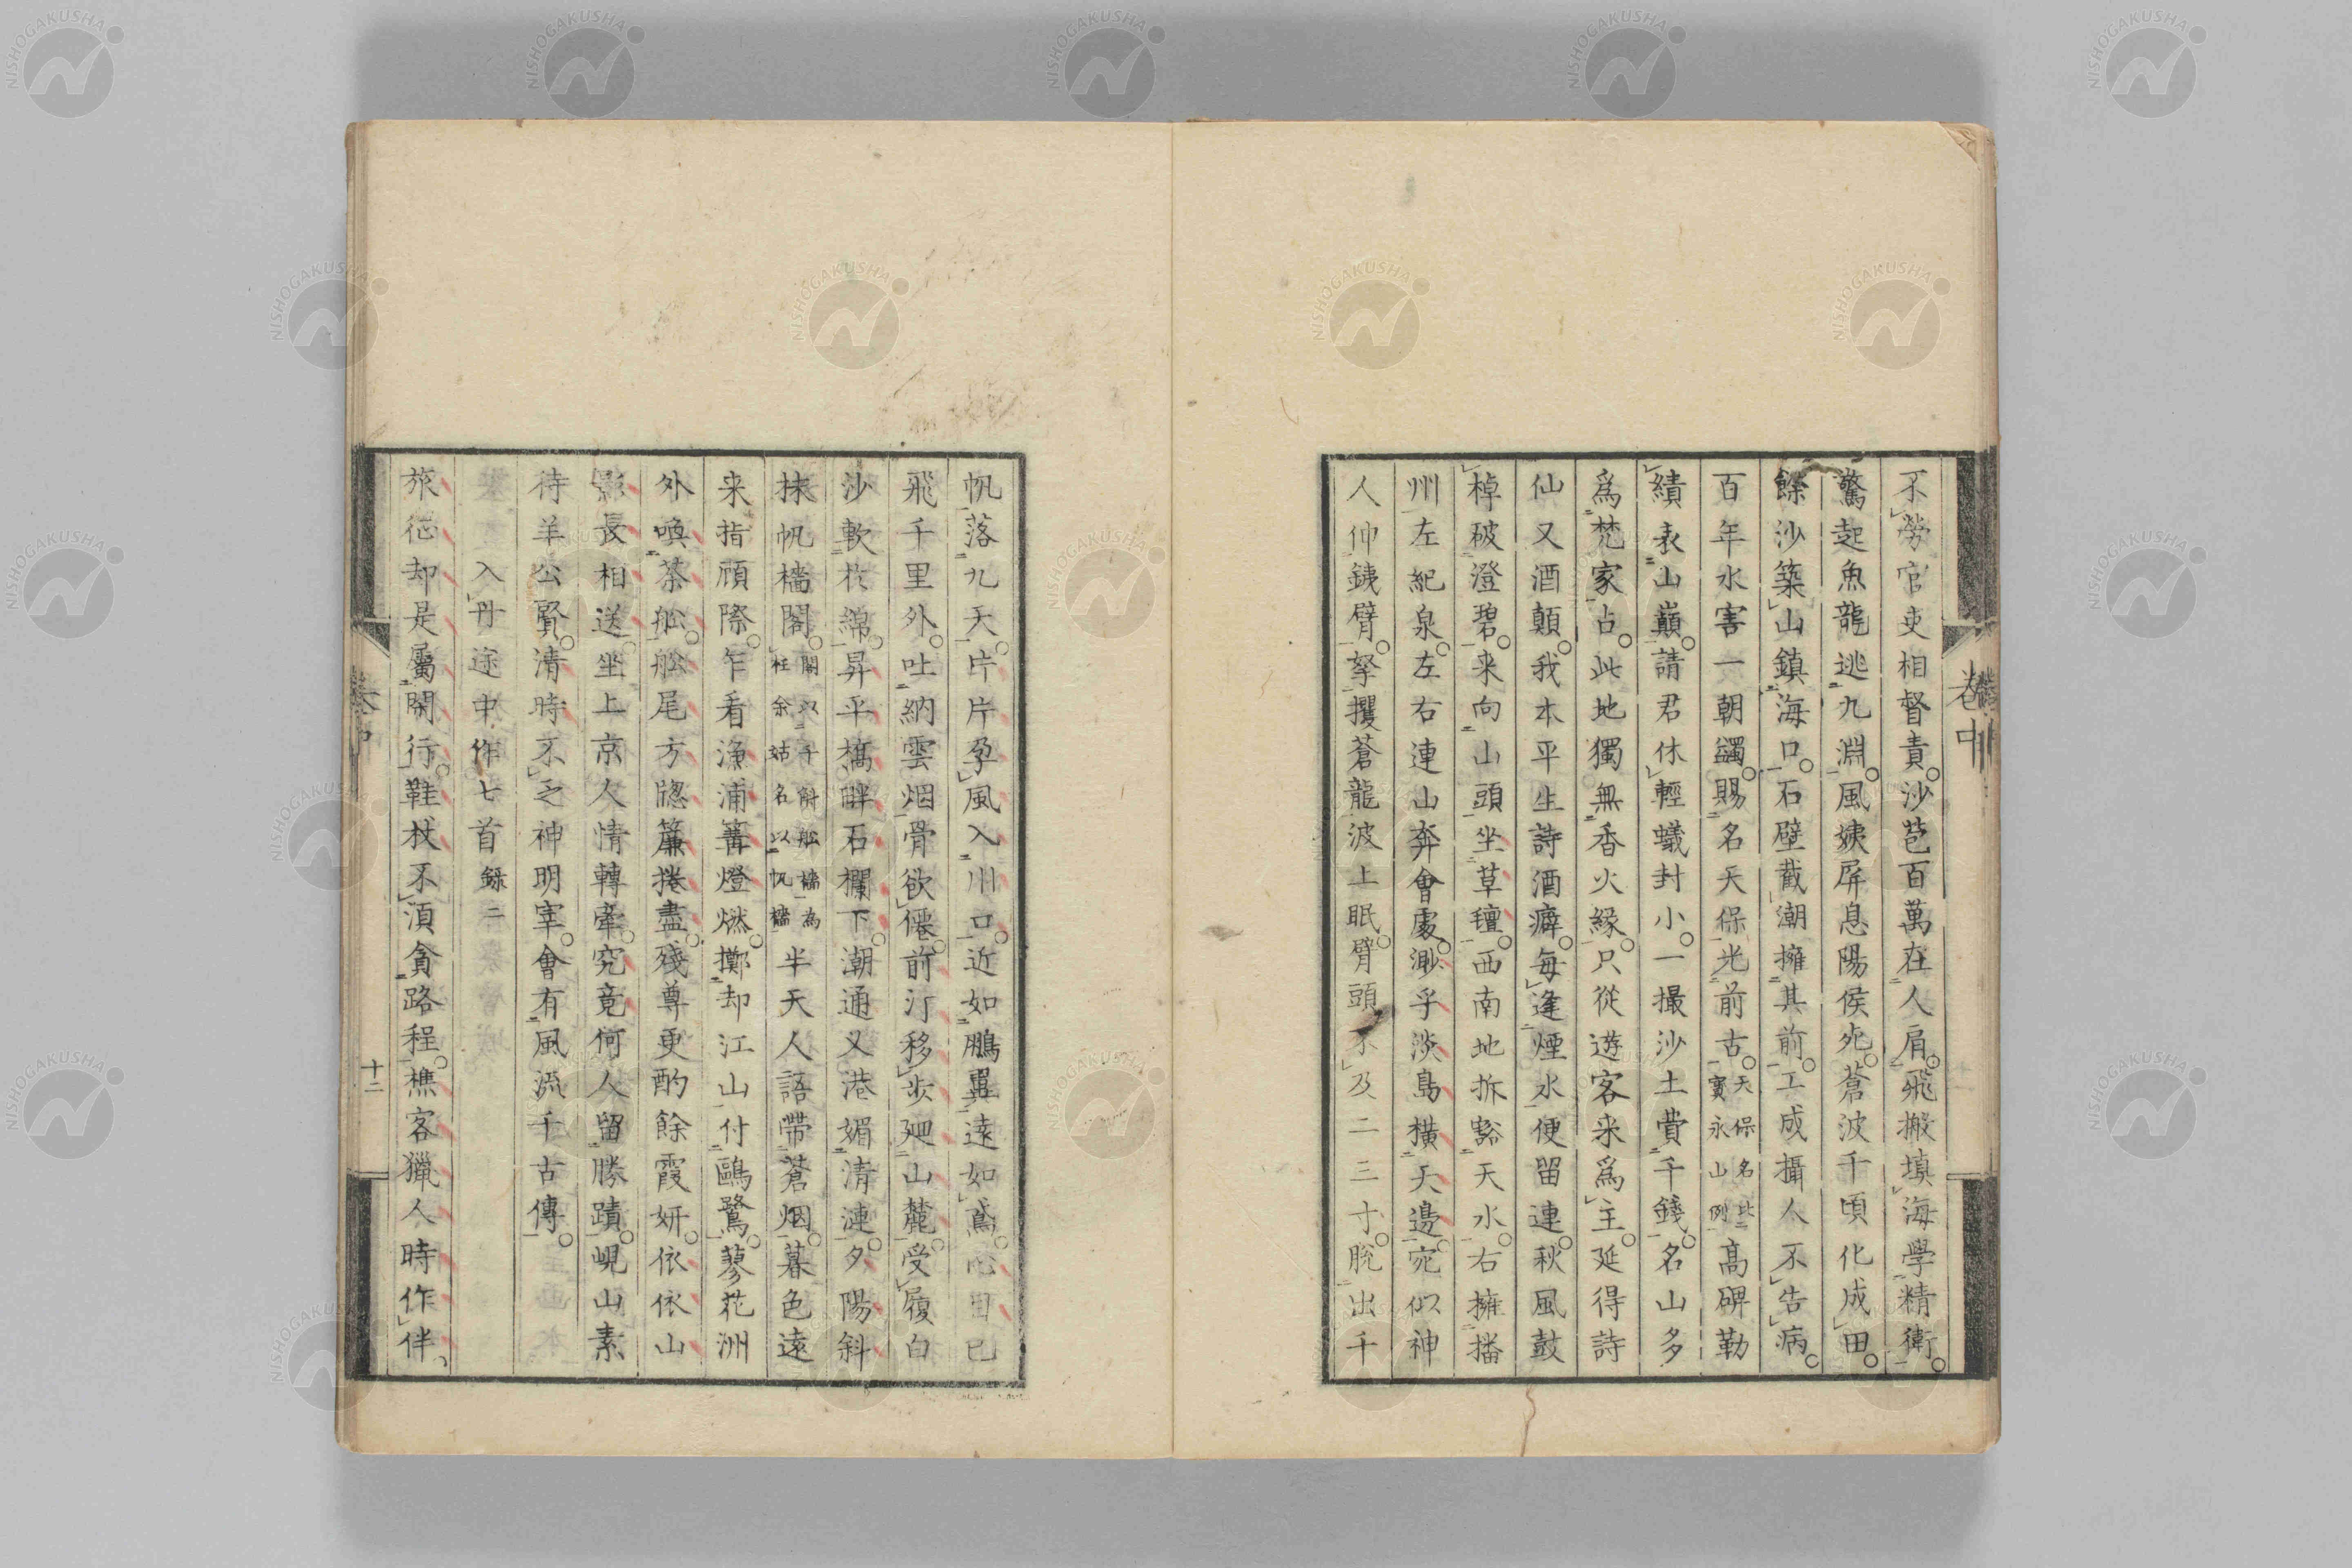 不勞官吏相督責沙苞百萬在人肩飛搬填海學精衛
驚起魚龍逃九淵風姨屏息陽侯死蒼波千頃化成田
餘沙築山鎮海口石壁截潮擁其前工成攝人不告病
百年水害一朝蠲賜名天保光前古天保名此寶永山例高碑勒
績表山巔請君休輕蟻封小一撮沙土費千錢名山多
爲梵家占此地獨無香火緣只從遊客来爲主延得詩
仙又酒顛我本平生詩酒癖每逢煙水便留連秋風鼓
棹破澄碧来向山頭坐草氊西南地拆豁天水右擁播
州左紀泉左右連山奔會處渺乎淡島橫天邊宛似神
人伸銕臂拏攫蒼龍波上眠臂頭不及二三寸脫出千
卷中
帆落九天片片孕風入川口近如鵬翼遠如鳶心目已
飛千里外吐納雲烟骨欲僊前汀移步廻山麓受履白
沙軟於綿昇平橋畔石欄下潮通又港媚清漣夕陽斜
抹帆檣閣閣以千斛船檣為柱余姑名以帆檣半天人語帶蒼烟暮色遠
来指頋際乍看漁浦篝燈燃擲却江山付鷗鷺蓼花洲
外喚茶舩舩尾方牕簾捲盡殘尊更酌餘霞妍依依山
影長相送坐上京人情轉牽究竟何人留勝蹟峴山素
待羊公賢清時不乏神明宰會有風流千古傳
入丹途中作七首録二
旅徃却是屬閑行鞋杖不湏貪路程樵客獵人時作伴
卷中
十二
NISHOGAKUSHA